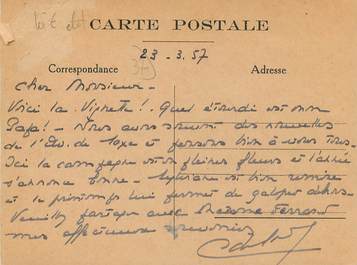 CARTE POSTALE
23-3.57
Correspondance
Adresse
Cher Monsieur -
Voici la Vignette! Quel étourdi est mon
Papa! - Nous avons souvent des nouvelles
de et pensons bien à vous tous -
Ici la campagne est en pleines fleurs et l'année
s'annonce est bien remise
et le printemps lui permet de galoper dehors -
Veuillez partager avec Madame Ferrand
mes affectueux souvenirs